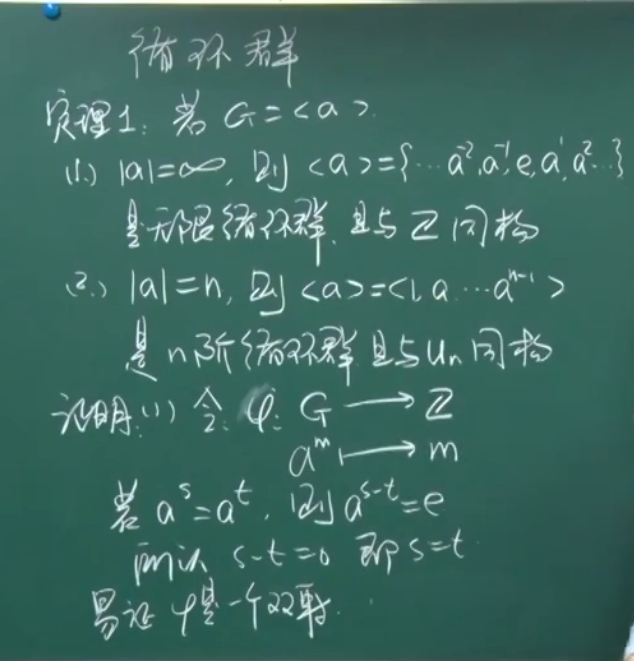 循环群
定理1: 若 G=<a>
(1.) |a|=∞, 则 <a>={…a⁻², a⁻¹, e, a¹, a²…}
是无限循环群, 且与 ℤ 同构
(2.) |a|=n, 则 <a>=<1, a…aⁿ⁻¹>
是 n 阶循环群 且与 Uₙ 同构
证明: (1) 令: φ: G ⟶ ℤ
aᵐ ⟼ m
若 aˢ=aᵗ, 则 aˢ⁻ᵗ=e
所以 s-t=0 即 s=t.
易证 φ是一个双射.